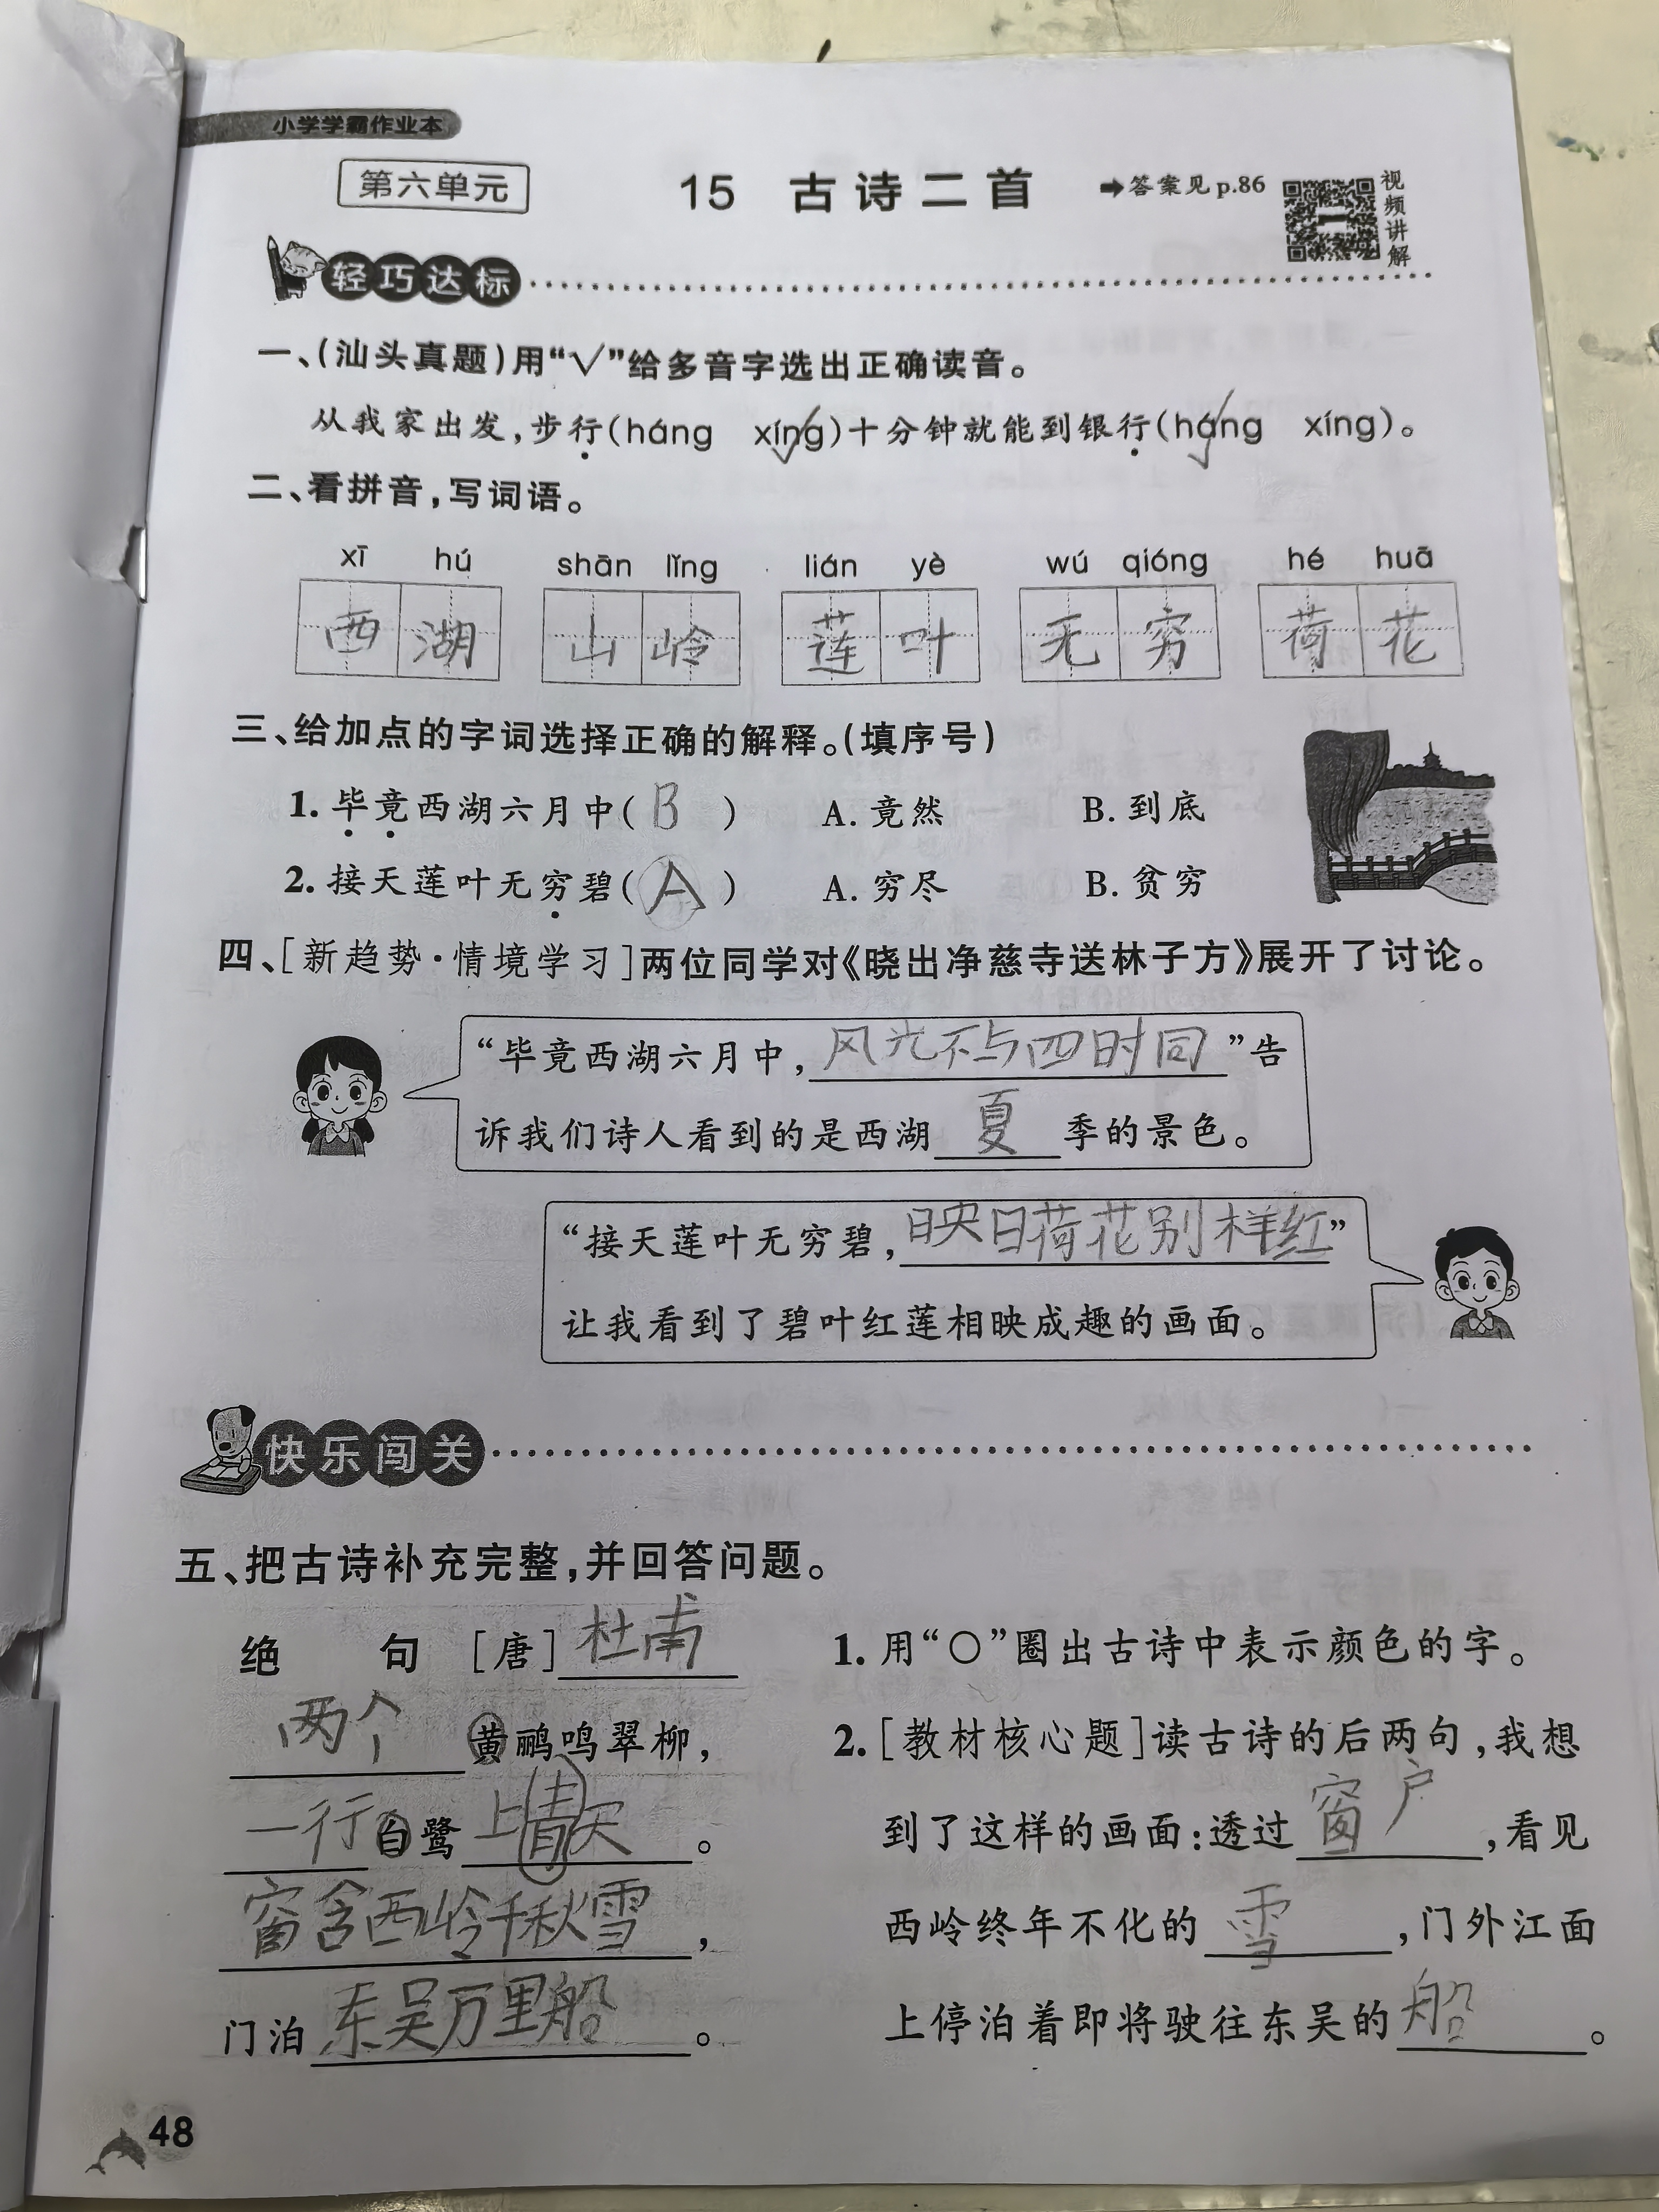 小学学霸作业本
第六单元
15 古诗二首
➡答案见p.86
视频讲解
轻巧达标
一、(汕头真题)用“√”给多音字选出正确读音。
从我家出发,步行(háng xíng)十分钟就能到银行(háng xíng)。
二、看拼音,写词语。
xī hú shān lǐng lián yè wú qióng hé huā
西湖 山岭 莲叶 无穷 荷花
三、给加点的字词选择正确的解释。(填序号)
1. 毕竟西湖六月中( B ) A. 竟然 B. 到底
2. 接天莲叶无穷碧( A ) A. 穷尽 B. 贫穷
四、[新趋势·情境学习]两位同学对《晓出净慈寺送林子方》展开了讨论。
“毕竟西湖六月中,风光不与四时同”告
诉我们诗人看到的是西湖夏季的景色。
“接天莲叶无穷碧,映日荷花别样红”
让我看到了碧叶红莲相映成趣的画面。
快乐闯关
五、把古诗补充完整,并回答问题。
绝 句 [唐]杜甫
两个黄鹂鸣翠柳,
一行白鹭上青天。
窗含西岭千秋雪,
门泊东吴万里船。
1. 用“○”圈出古诗中表示颜色的字。
2. [教材核心题]读古诗的后两句,我想
到了这样的画面:透过窗户,看见
西岭终年不化的雪,门外江面
上停泊着即将驶往东吴的船。
48